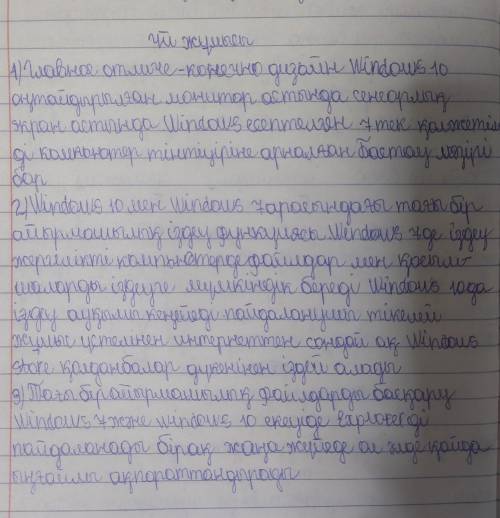 Үй жұмысы
1) Главное отличе - конечно дизайн Windows 10
оңтайдырылған монитор астында сенсорлық
экран астында Windows есептелген 7 тек қолжетім
ді компьютер тінтуіріне арналған бастау мәзірі
бар
2) Windows 10 мен Windows 7 арасындағы тағы бір
айырмашылық іздеу функциясы Windows 7де іздеу
жергілікті компьютерде файлдар мен қосым-
шаларды іздеуге мүмкіндік береді Windows 10да
іздеу ауқымы кеңейеді пайдаланушы тікелей
жұмыс үстелінен интернеттен сондай ақ Windows
Store қолданбалар дүкенінен іздей алады
3) Тағы бір айырмашылық файлдарды басқару
Windows 7 және windows 10 екеуіде explorerді
пайдаланады бірақ жаңа жүйеде ол қайда
ыңғайлы ақпораттандырады